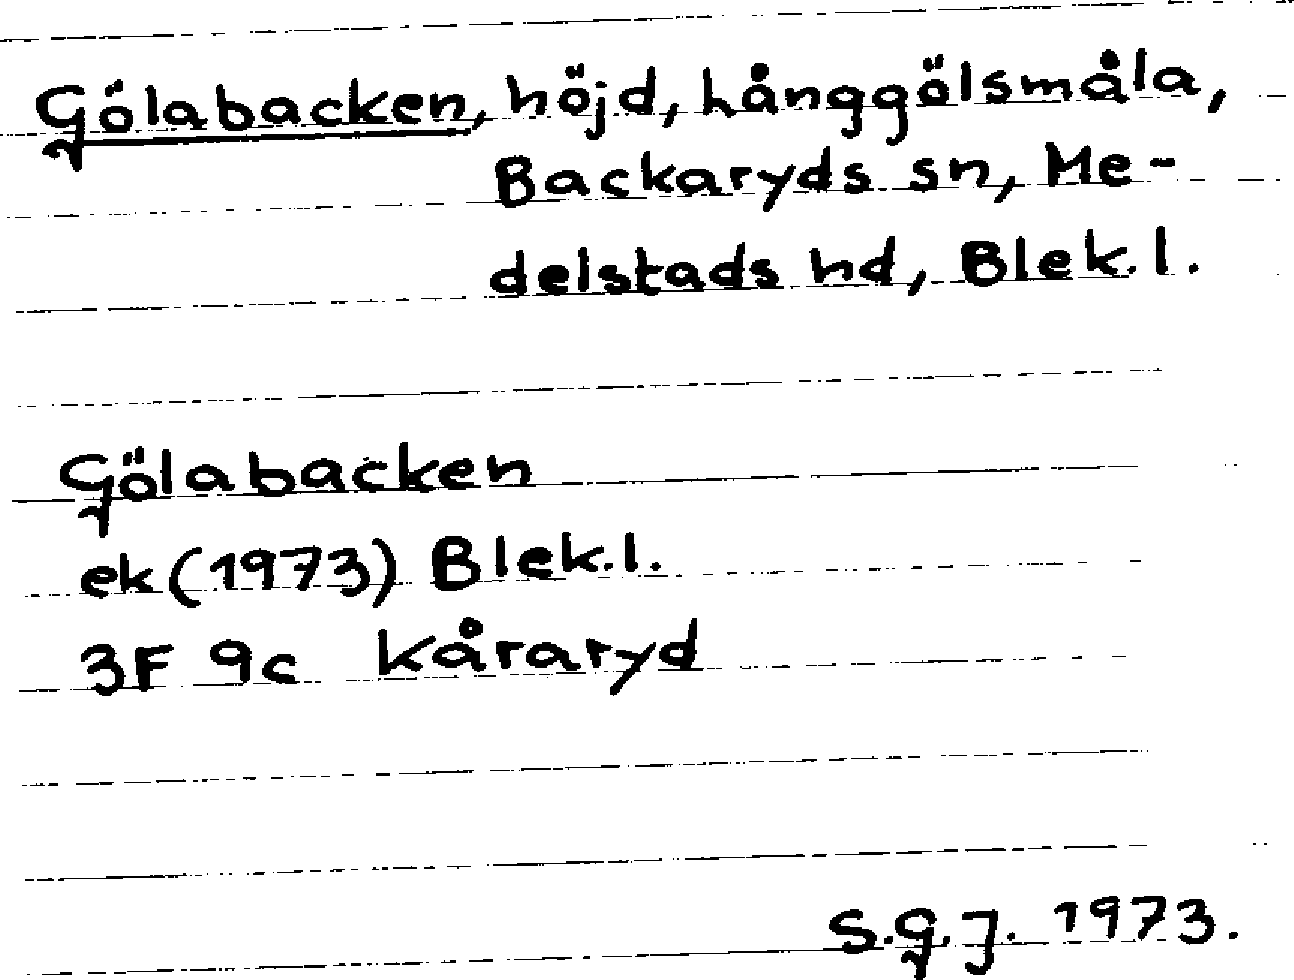 Gölabacken, höjd, Långgölsmåla,
Backaryds sn, Me-
delstads hd, Blek.l.
Gölabacken
ek (1973) Blek.l.
3F 9c Kåraryd
S.G.J. 1973.